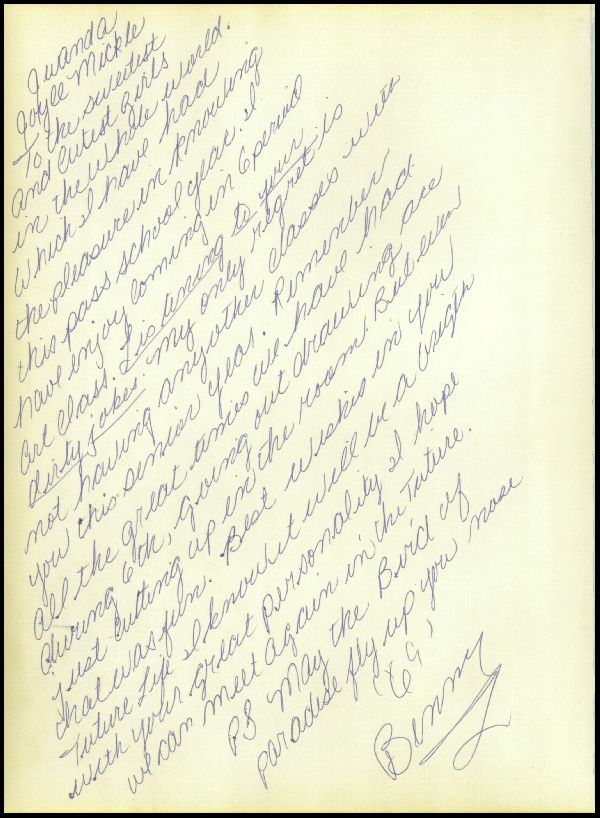 Juanda
Joyce Mickle
To the sweetest
and cutest girls
in the whole world.
Which I have had
the pleasure in knowing
this pass school year. I
have enjoy coming in 6 period
art class. Listening to your
dirty jokes. My only regret is
not having any other classes with
you this senior year. Remember
all the great times we have had
during 6th, going out drawing are
just cutting up in the room. But even
that was fun. Best wishes in you
future life I know it will be a brigth
with your great personality I hope
we can meet again in the future.
PS May the Bird of
paradise fly up you nose
'69,
Benny